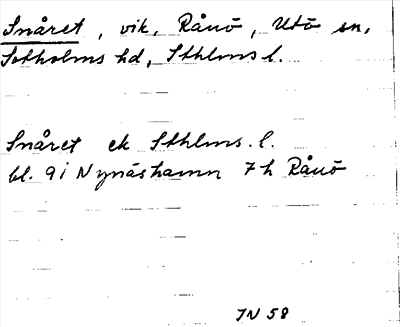 Snåret, vik, Rånö, Utö sn,
Sotholms hd, Sthlms l.
Snåret ek Sthlms. l.
bl. 9i Nynäshamn 7h Rånö
IN 58